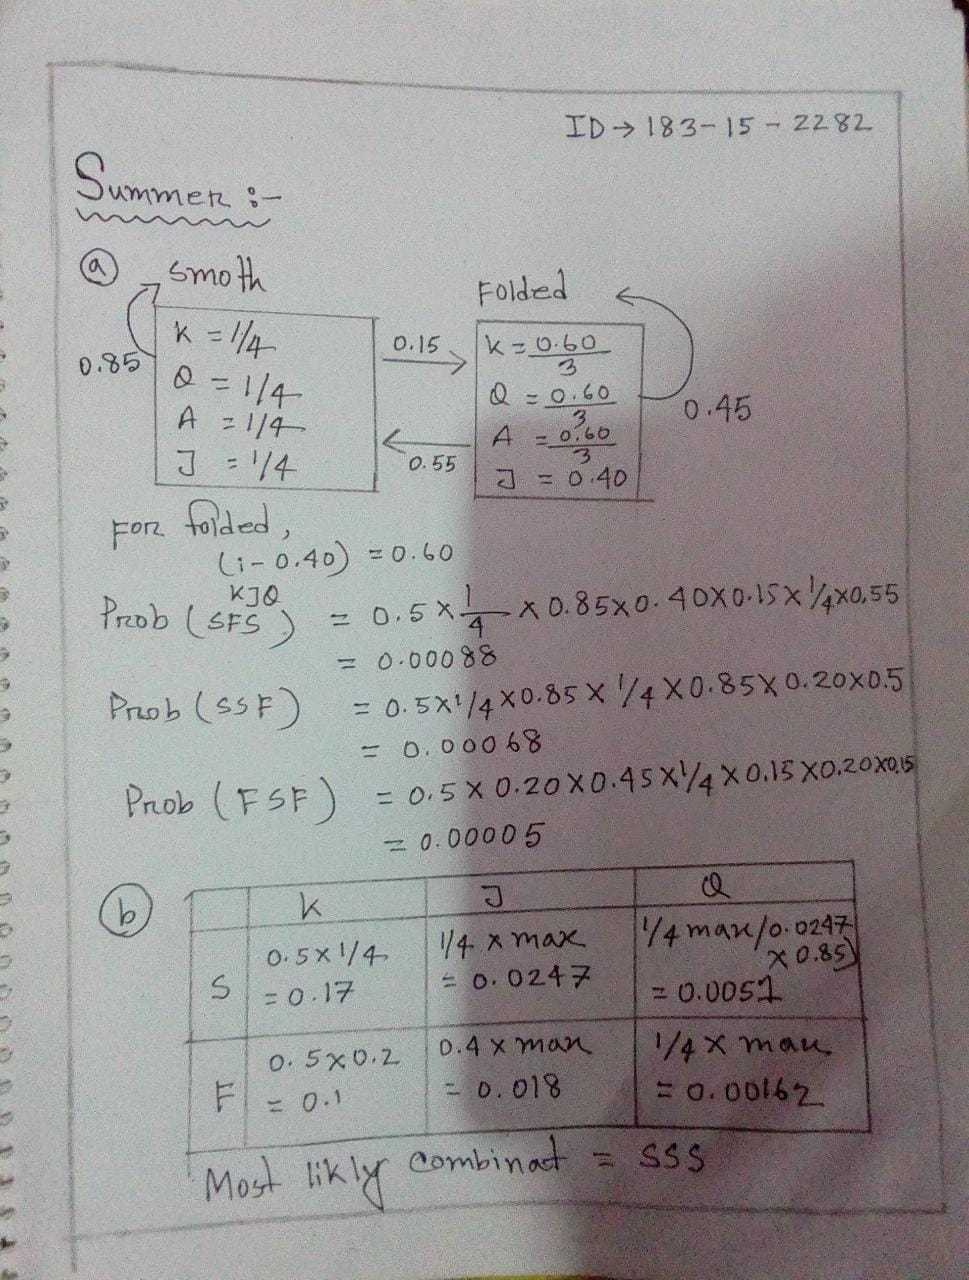 ID → 183-15-2282
Summer :-
ⓐ smoth
Folded
K = 1/4
Q = 1/4
A = 1/4
J = 1/4
0.85
0.15
0.55
K = 0.60/3
Q = 0.60/3
A = 0.60/3
J = 0.40
0.45
For folded,
(1-0.40) = 0.60
KJQ
Prob (SFS) = 0.5 × 1/4 × 0.85 × 0.40 × 0.15 × 1/4 × 0.55
= 0.00088
Prob (SSF) = 0.5 × 1/4 × 0.85 × 1/4 × 0.85 × 0.20 × 0.5
= 0.00068
Prob (FSF) = 0.5 × 0.20 × 0.45 × 1/4 × 0.15 × 0.20 × 0.15
= 0.00005
ⓑ
K J Q
S
0.5 × 1/4
= 0.17
1/4 × max
= 0.0247
1/4 max/0.0247
× 0.85)
= 0.0051
F
0.5 × 0.2
= 0.1
0.4 × max
= 0.018
1/4 × max
= 0.00162
Most likly combinat = SSS